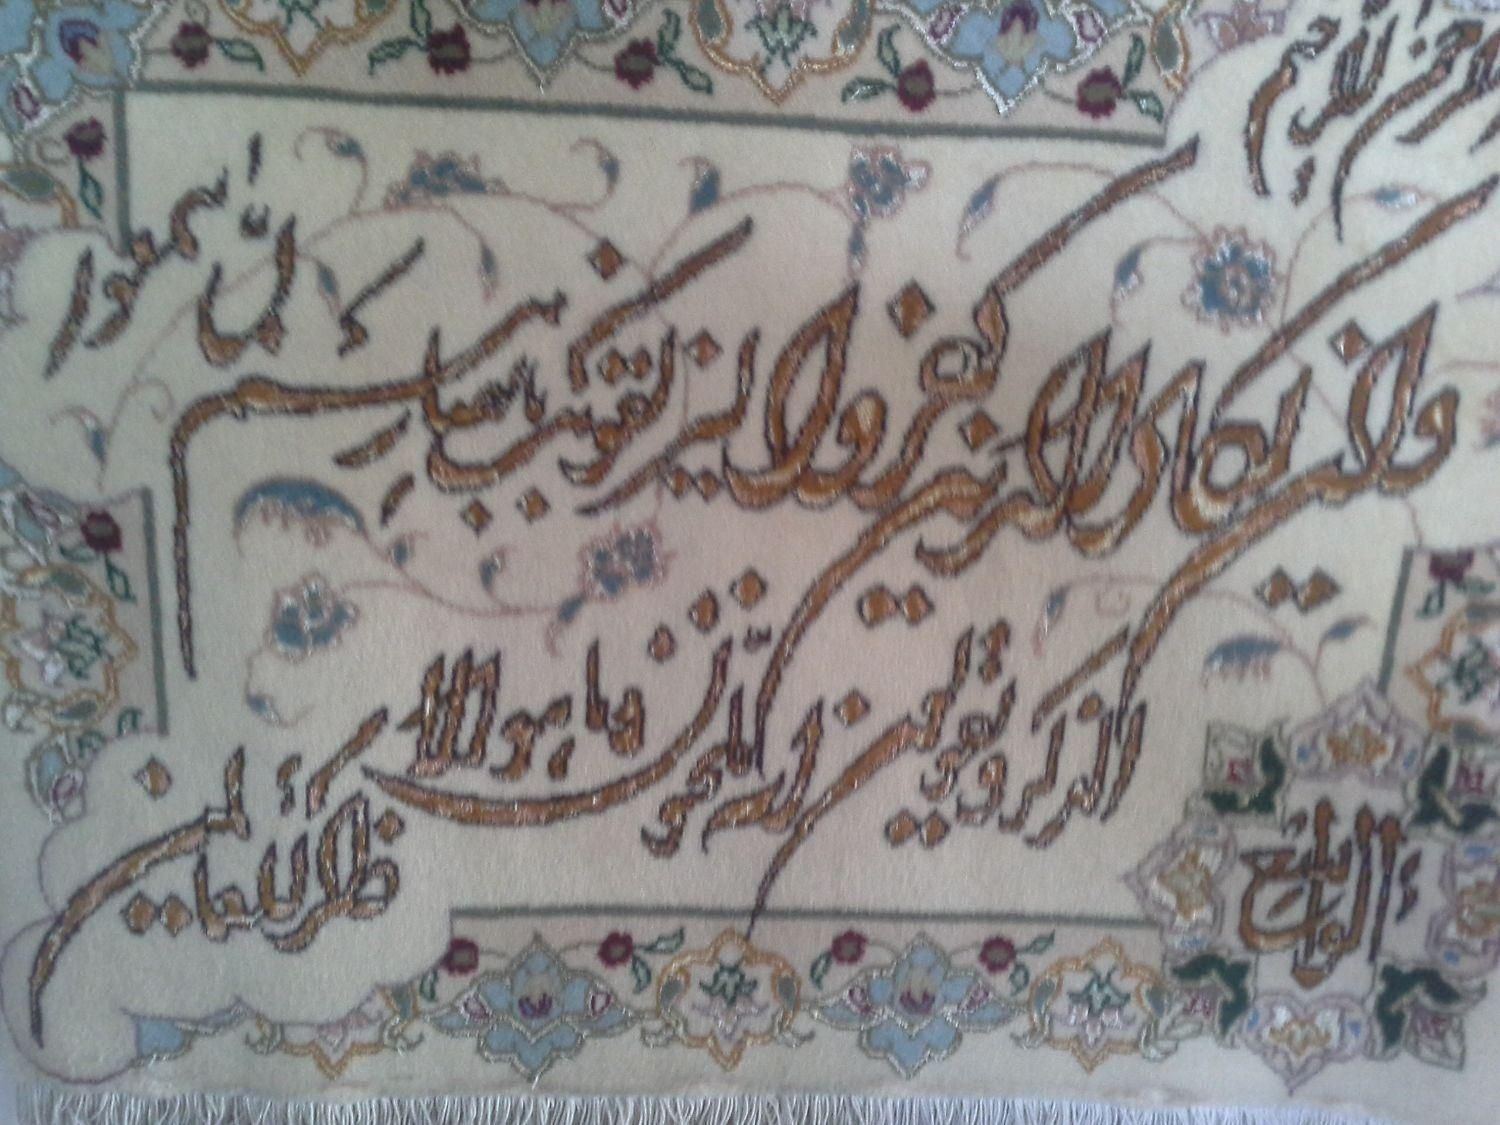 الرحمن الرحیم
وان یکاد الذین کفروا لیزلقونک بابصارهم لما سمعوا
الذکر و یقولون انه لمجنون و ما هو الا
ذکر للعالمین